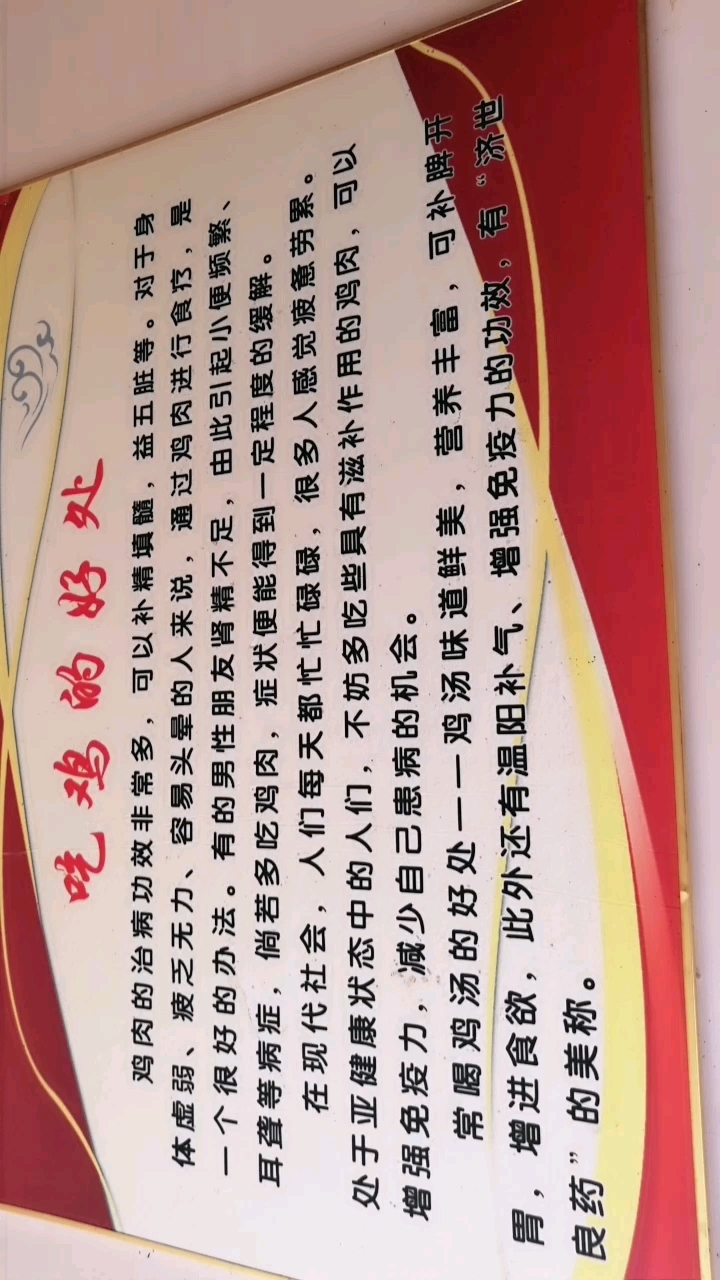 吃鸡的好处
鸡肉的治病功效非常多，可以补精填髓，益五脏等。对于身
体虚弱、疲乏无力、容易头晕的人来说，通过鸡肉进行食疗，是
一个很好的办法。有的男性朋友肾精不足，由此引起小便频繁、
耳聋等病症，倘若多吃鸡肉，症状便能得到一定程度的缓解。
在现代社会，人们每天都忙忙碌碌，很多人感觉疲惫劳累。
处于亚健康状态中的人们，不妨多吃些具有滋补作用的鸡肉，可以
增强免疫力，减少自己患病的机会。
常喝鸡汤的好处——鸡汤味道鲜美，营养丰富，可补脾开
胃，增进食欲，此外还有温阳补气、增强免疫力的功效，有“济世
良药”的美称。